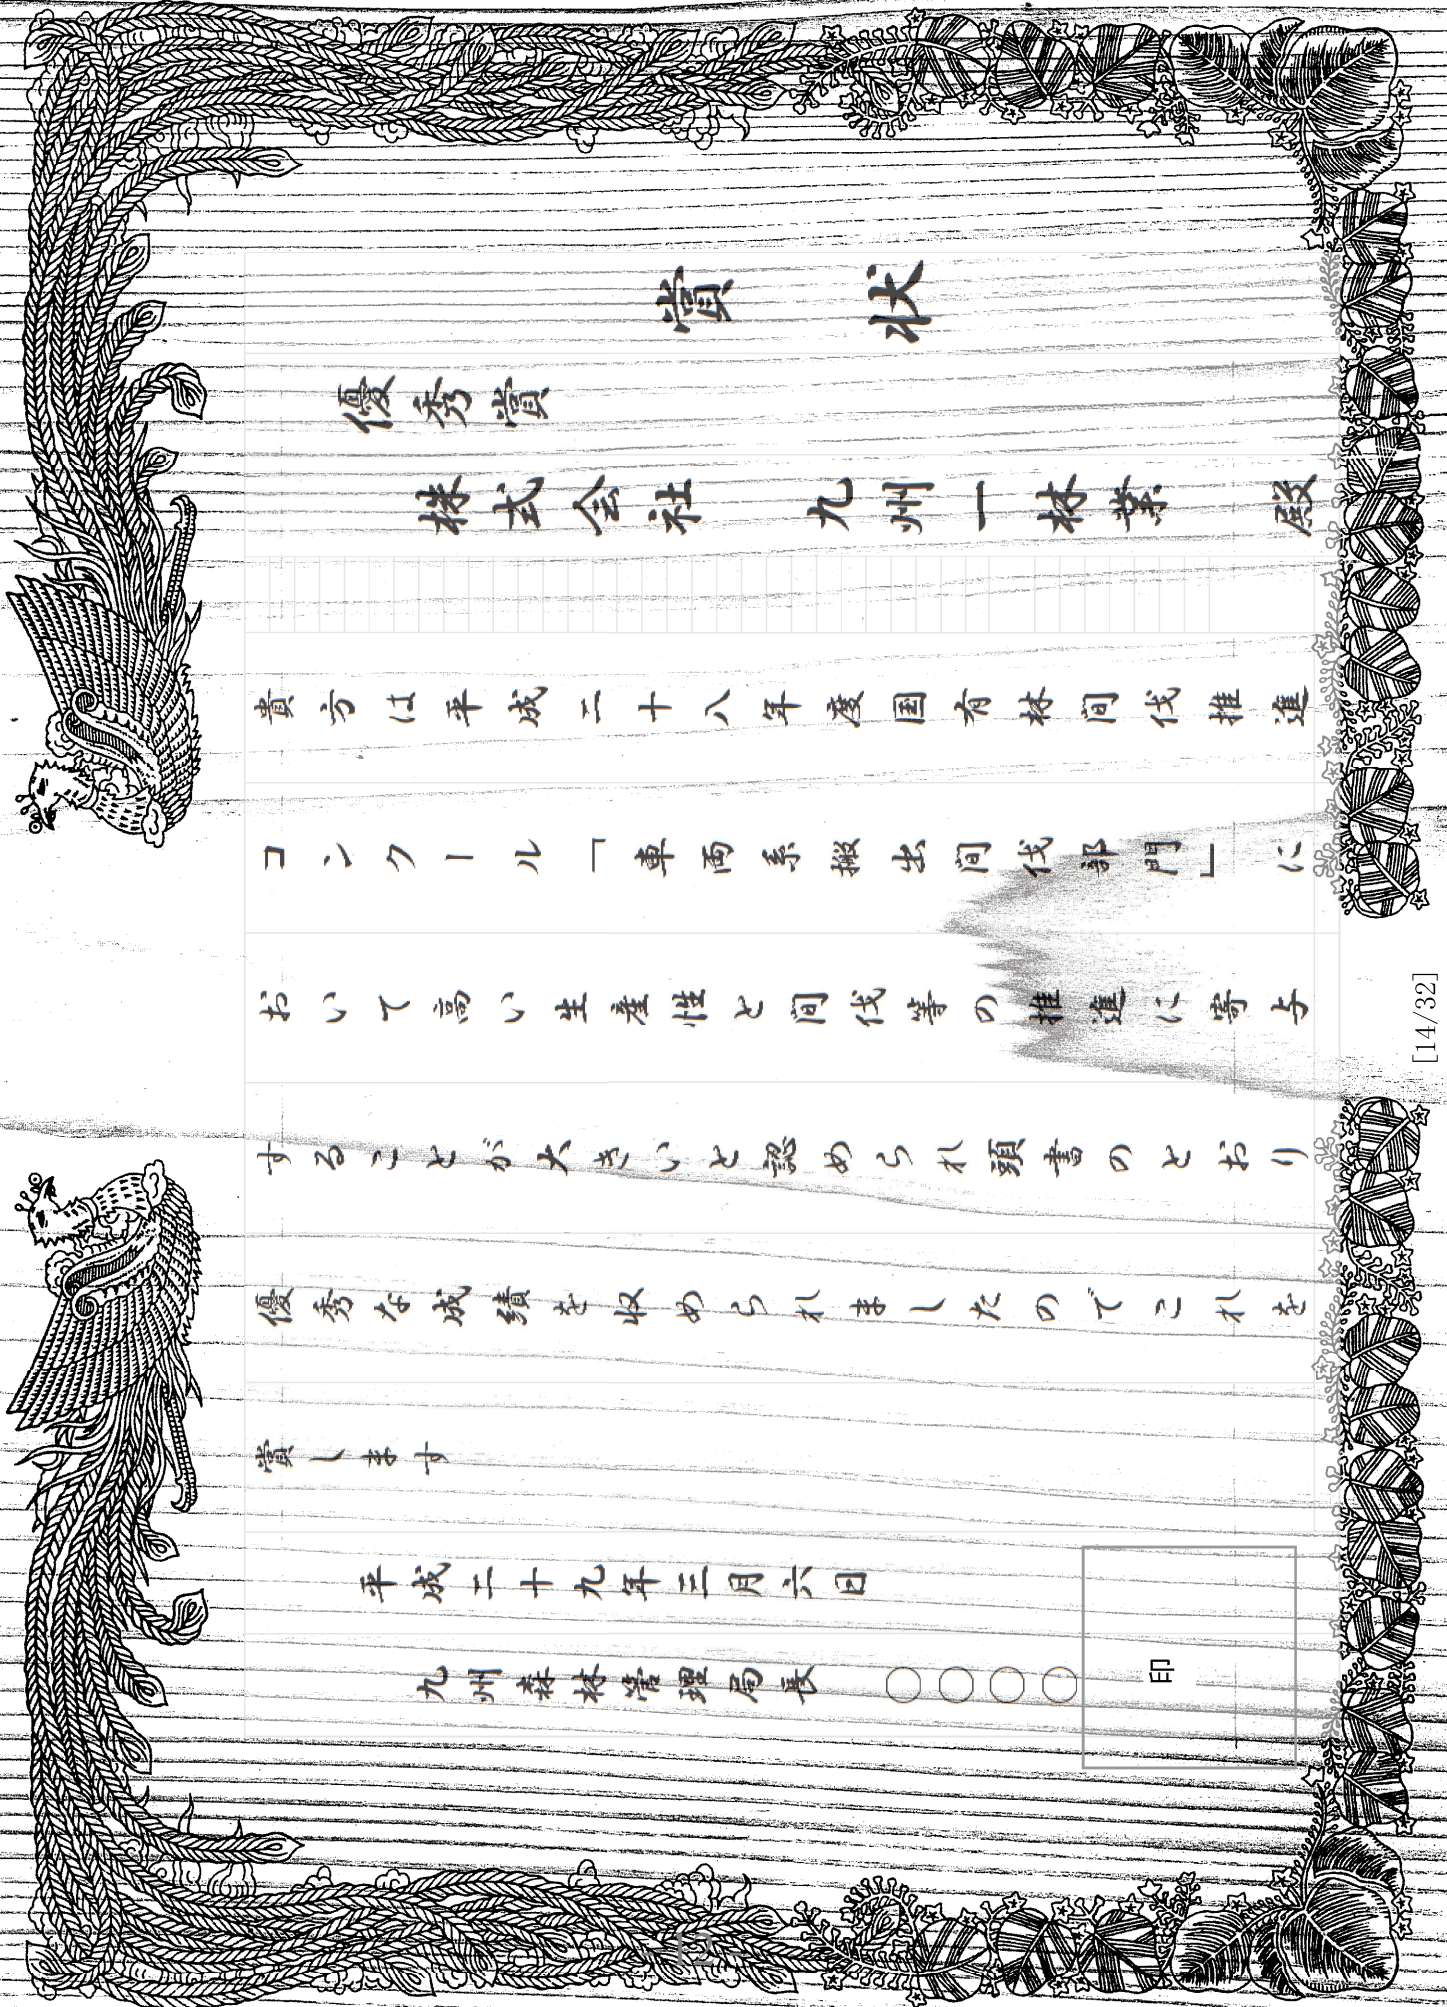 賞　状
優秀賞
株式会社　九州一林業　殿
貴方は平成二十八年度国有林間伐推進
コンクール「車両系搬出間伐部門」に
おいて高い生産性と間伐等の推進に寄与
することが大きいと認められ頭書のとおり
優秀な成績を収められましたのでこれを
賞します
平成二十九年三月六日
九州森林管理局長　〇〇〇〇
印
[14/32]